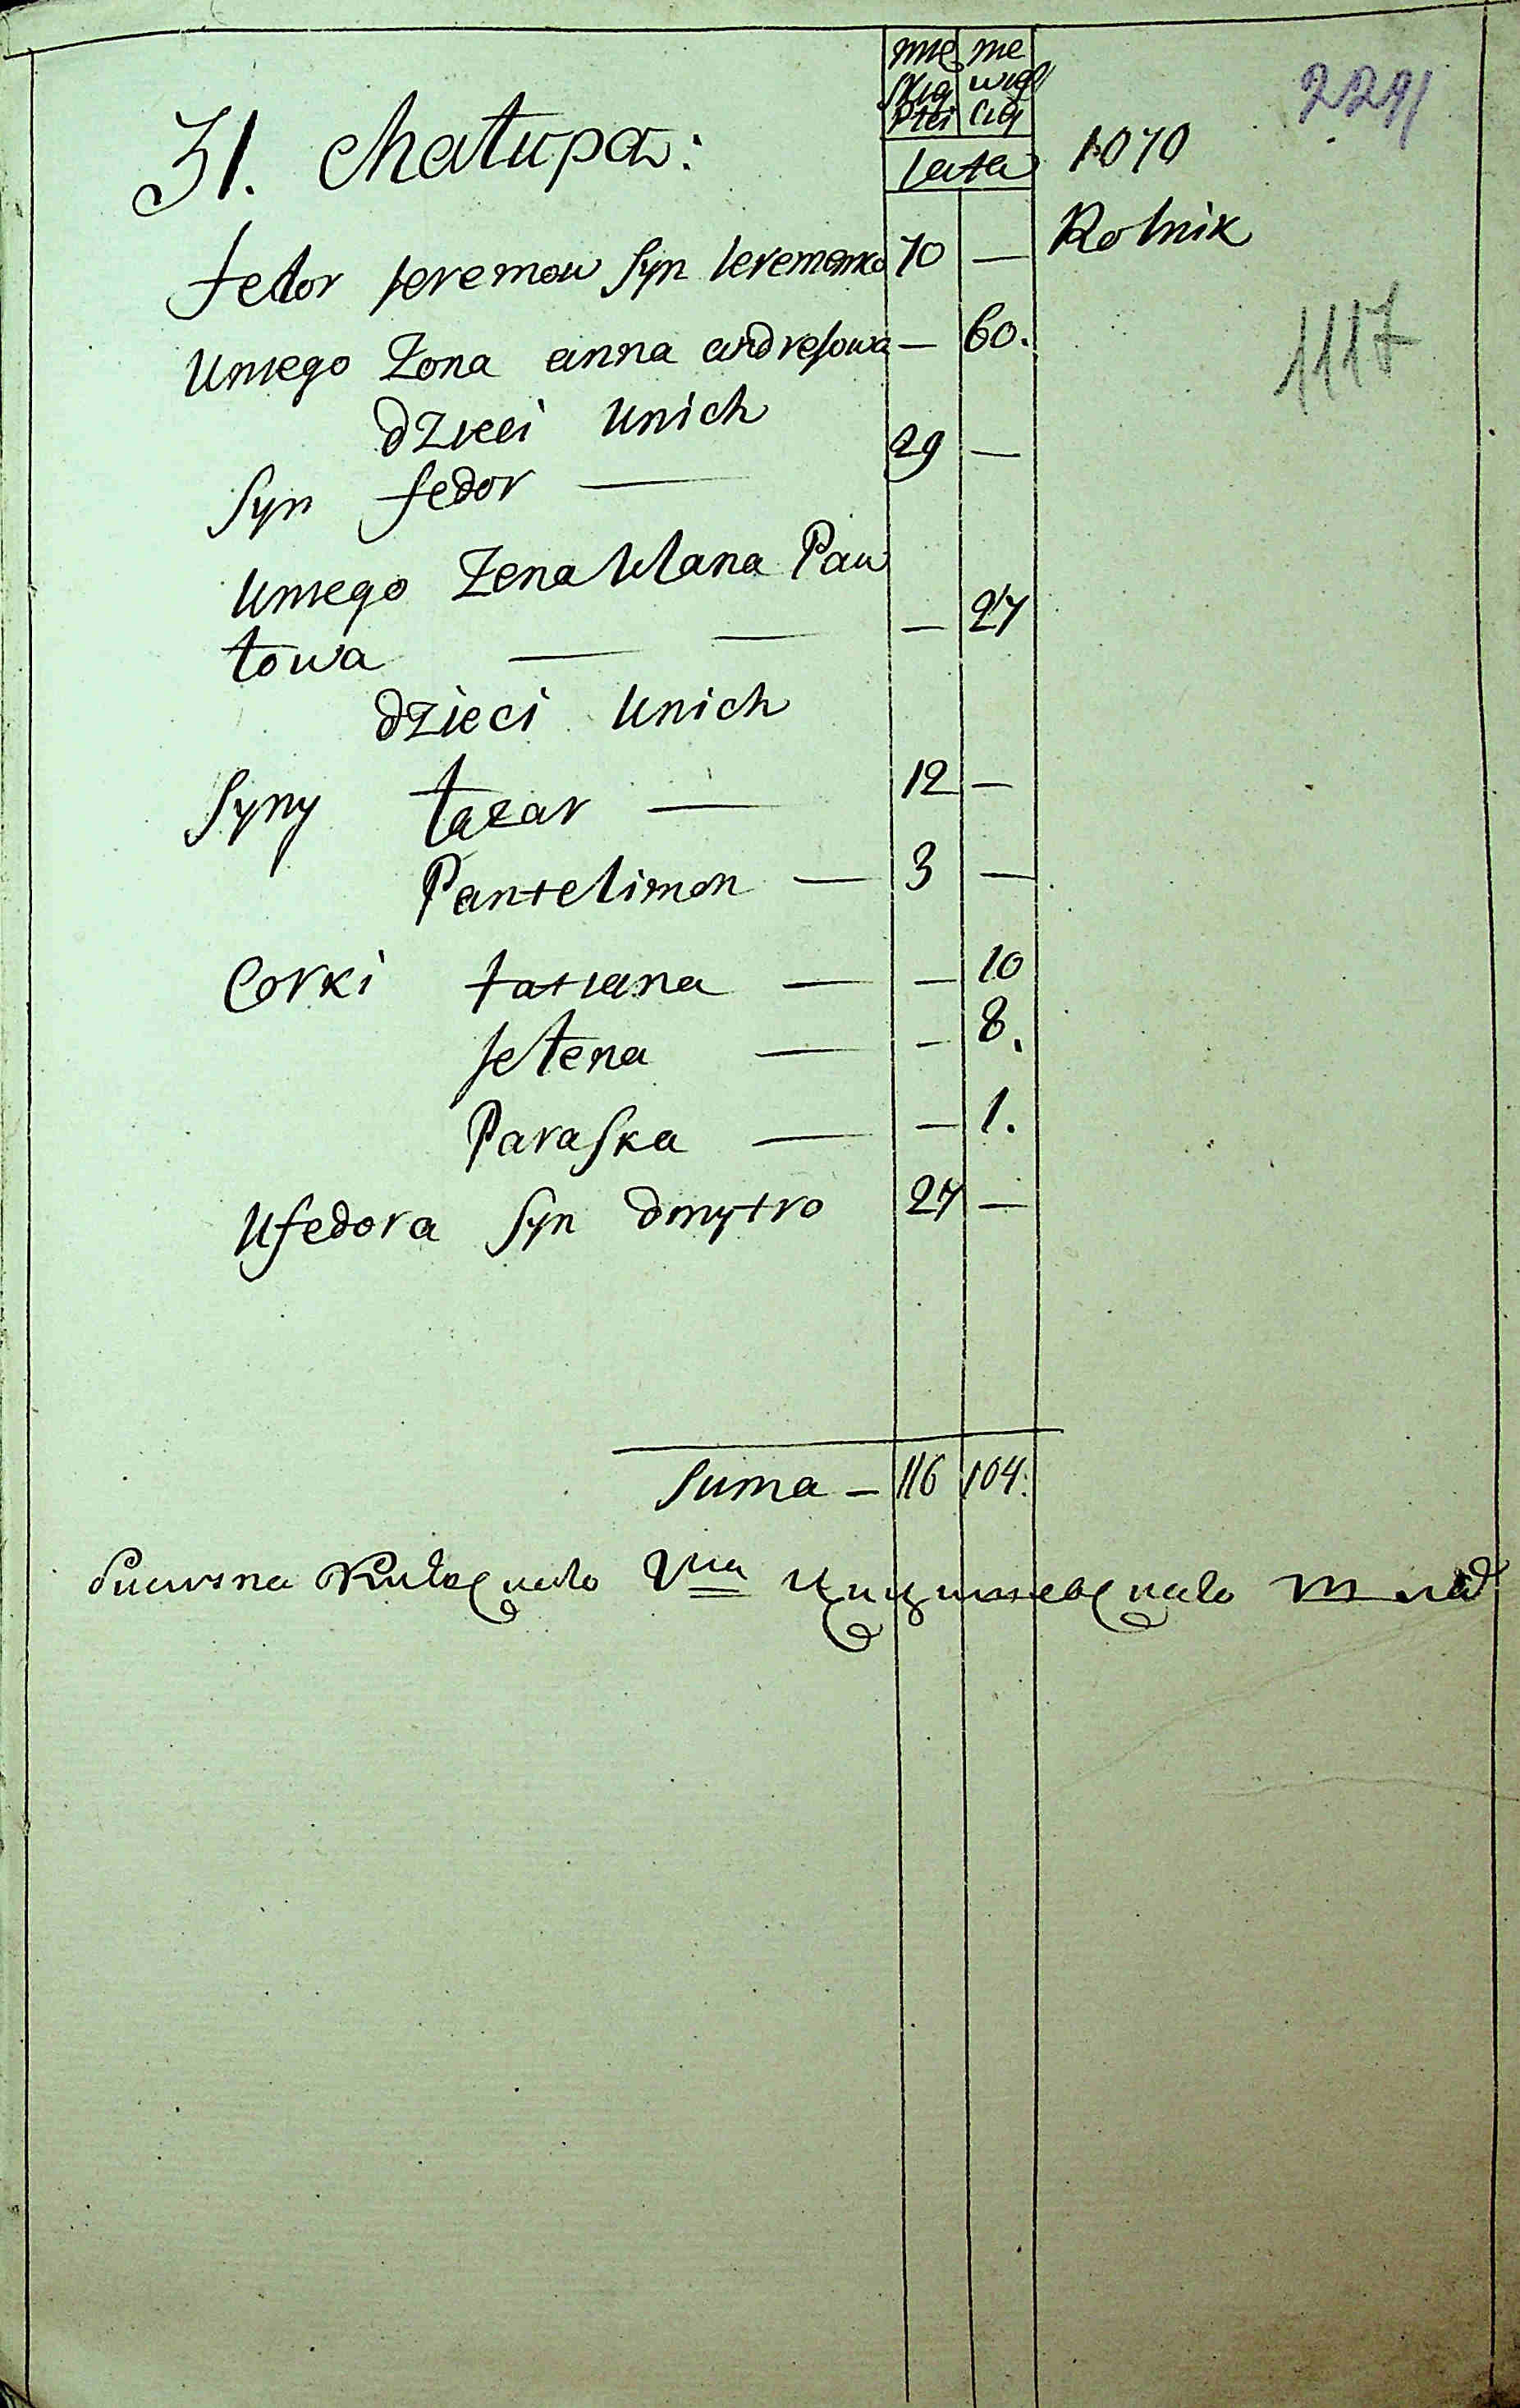 31. chałupa:
męską płci
niewieścią
lata
1070
2291
1117
Fedor Jeremow Syn Jeremenko 70 — Rolnik
Uniego Zona anna andresowa — 60.
dzieci Unich
Syn fedor — 29 —
Uniego Zena Ulana Paw
łowa — — — 27
dzieci Unich
Syny łazar — 12 —
Pantelimon — 3 —
Corki tatiana — — 10
Jełena — — 8.
Paraska — — 1.
Ufedora Syn dmytro 27 —
Suma — 116 104.